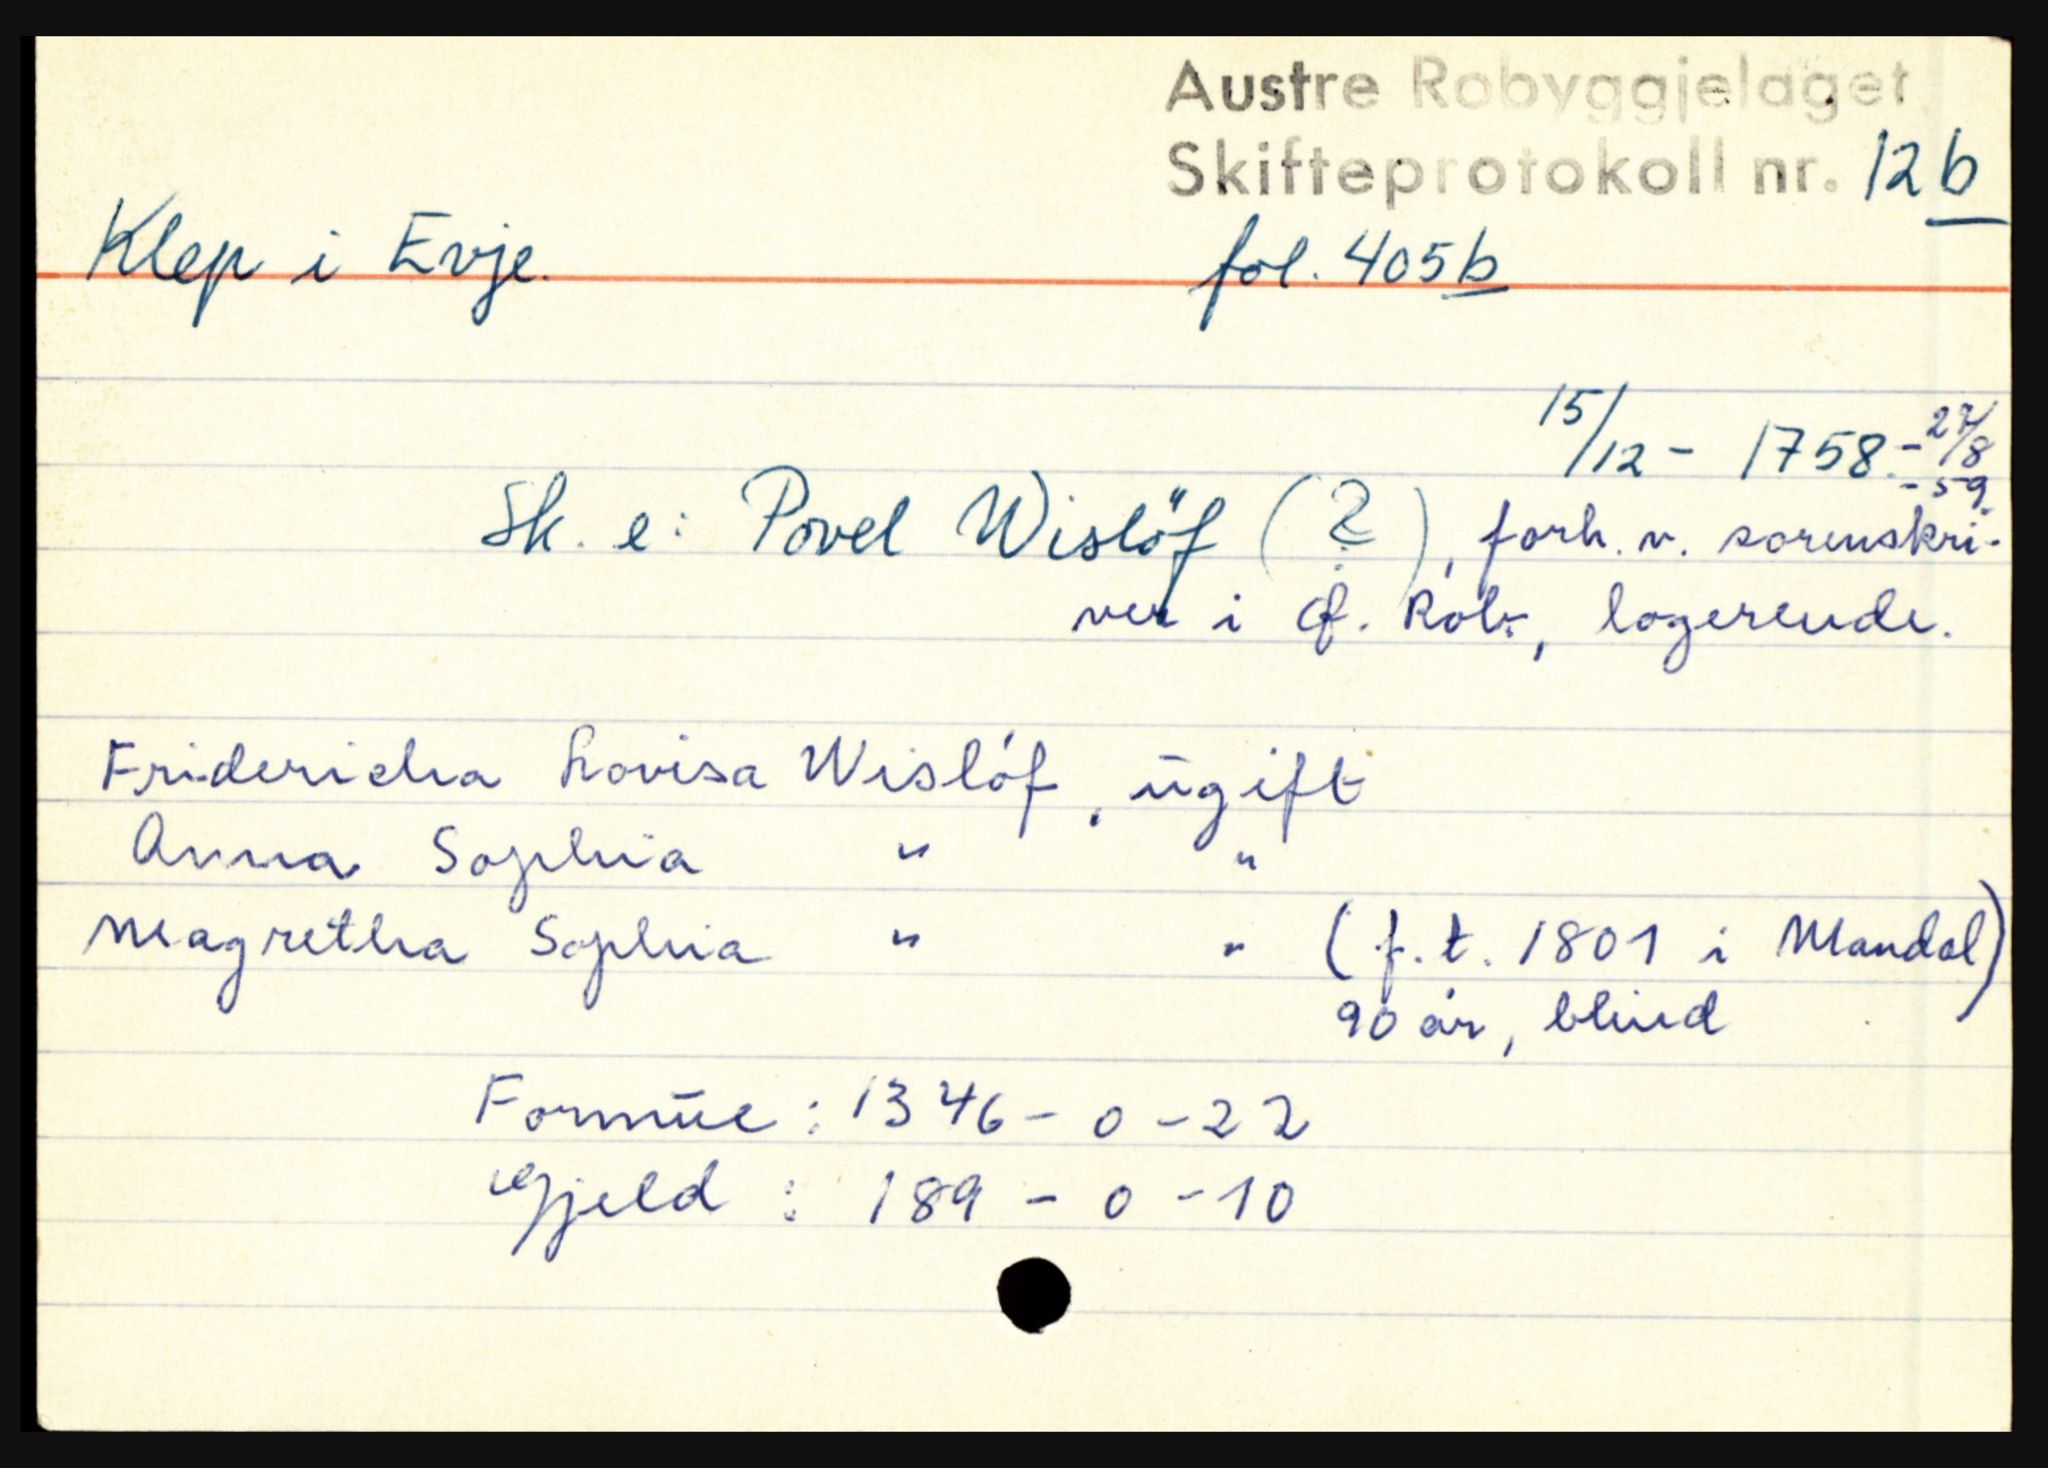 Austre Robyggjelaget
Skifteprotokoll nr. 12b
Klep i Evje. fol. 405b
15/12 - 1758 - 27/8
- 59.
Sk. e: Povel Wislöf (?), forh. v. sorenskri-
ver i Ø. Rob., logerende.
Fridericha Lovisa Wislóf, ūgift
Anna Sophia " "
Magretha Sophia " " (f.t. 1801 i Mandal)
90 år, blind
Formūe : 1346 - 0 - 22
Gjeld : 189 - 0 - 10